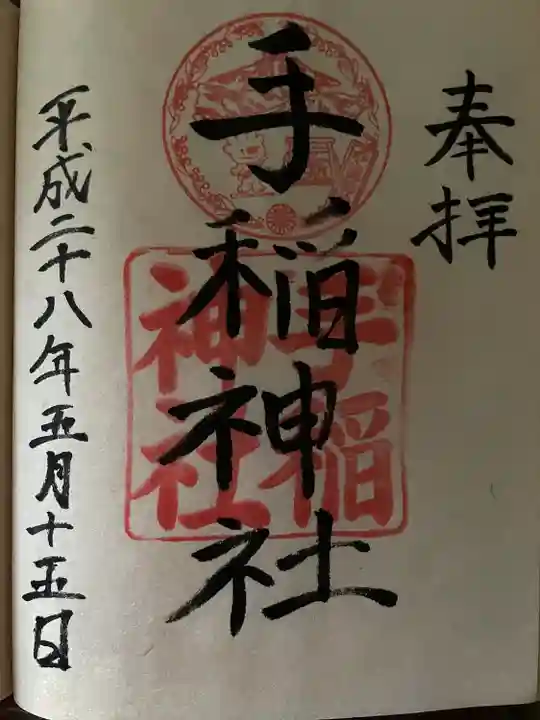 奉拝
手稲神社
手稲神社
平成二十八年五月十五日